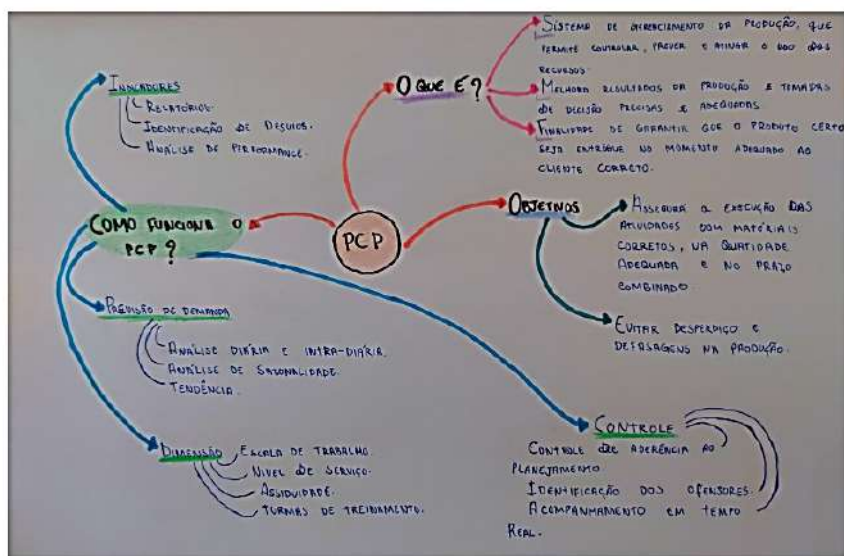 PCP
O QUE É?
SISTEMA DE GERENCIAMENTO DA PRODUÇÃO, QUE
PERMITE CONTROLAR, PREVER E ATINGIR O USO DOS
RECURSOS.
MELHORA RESULTADOS DA PRODUÇÃO E TOMADAS
DE DECISÃO PRECISAS E ADEQUADAS
FINALIDADE DE GARANTIR QUE O PRODUTO CERTO
SEJA ENTREGUE NO MOMENTO ADEQUADO AO
CLIENTE CORRETO.
OBJETIVOS
ASSEGURA A EXECUÇÃO DAS
ATIVIDADES COM MATÉRIAIS
CORRETOS, NA QUATIDADE
ADEQUADA E NO PRAZO
COMBINADO.
EVITAR DESPERDIÇO E
DEFASAGENS NA PRODUÇÃO.
COMO FUNCIONA O
PCP?
INDICADORES
RELATÓRIOS.
IDENTIFICAÇÃO DE DESVIOS.
ANÁLISE DE PERFORMANCE.
PREVISÃO DE DEMANDA
ANÁLISE DIÁRIA E INTRA-DIÁRIA.
ANÁLISE DE SAZONALIDADE.
TENDÊNCIA.
DIMENSÃO
ESCALA DE TRABALHO.
NIVEL DE SERVIÇO.
ASSIDUIDADE.
TURMAS DE TREINAMENTO.
CONTROLE
CONTROLE DE ADERÊNCIA AO
PLANEJAMENTO
IDENTIFICAÇÃO DOS OFENSORES.
ACOMPANHAMENTO EM TEMPO
REAL.